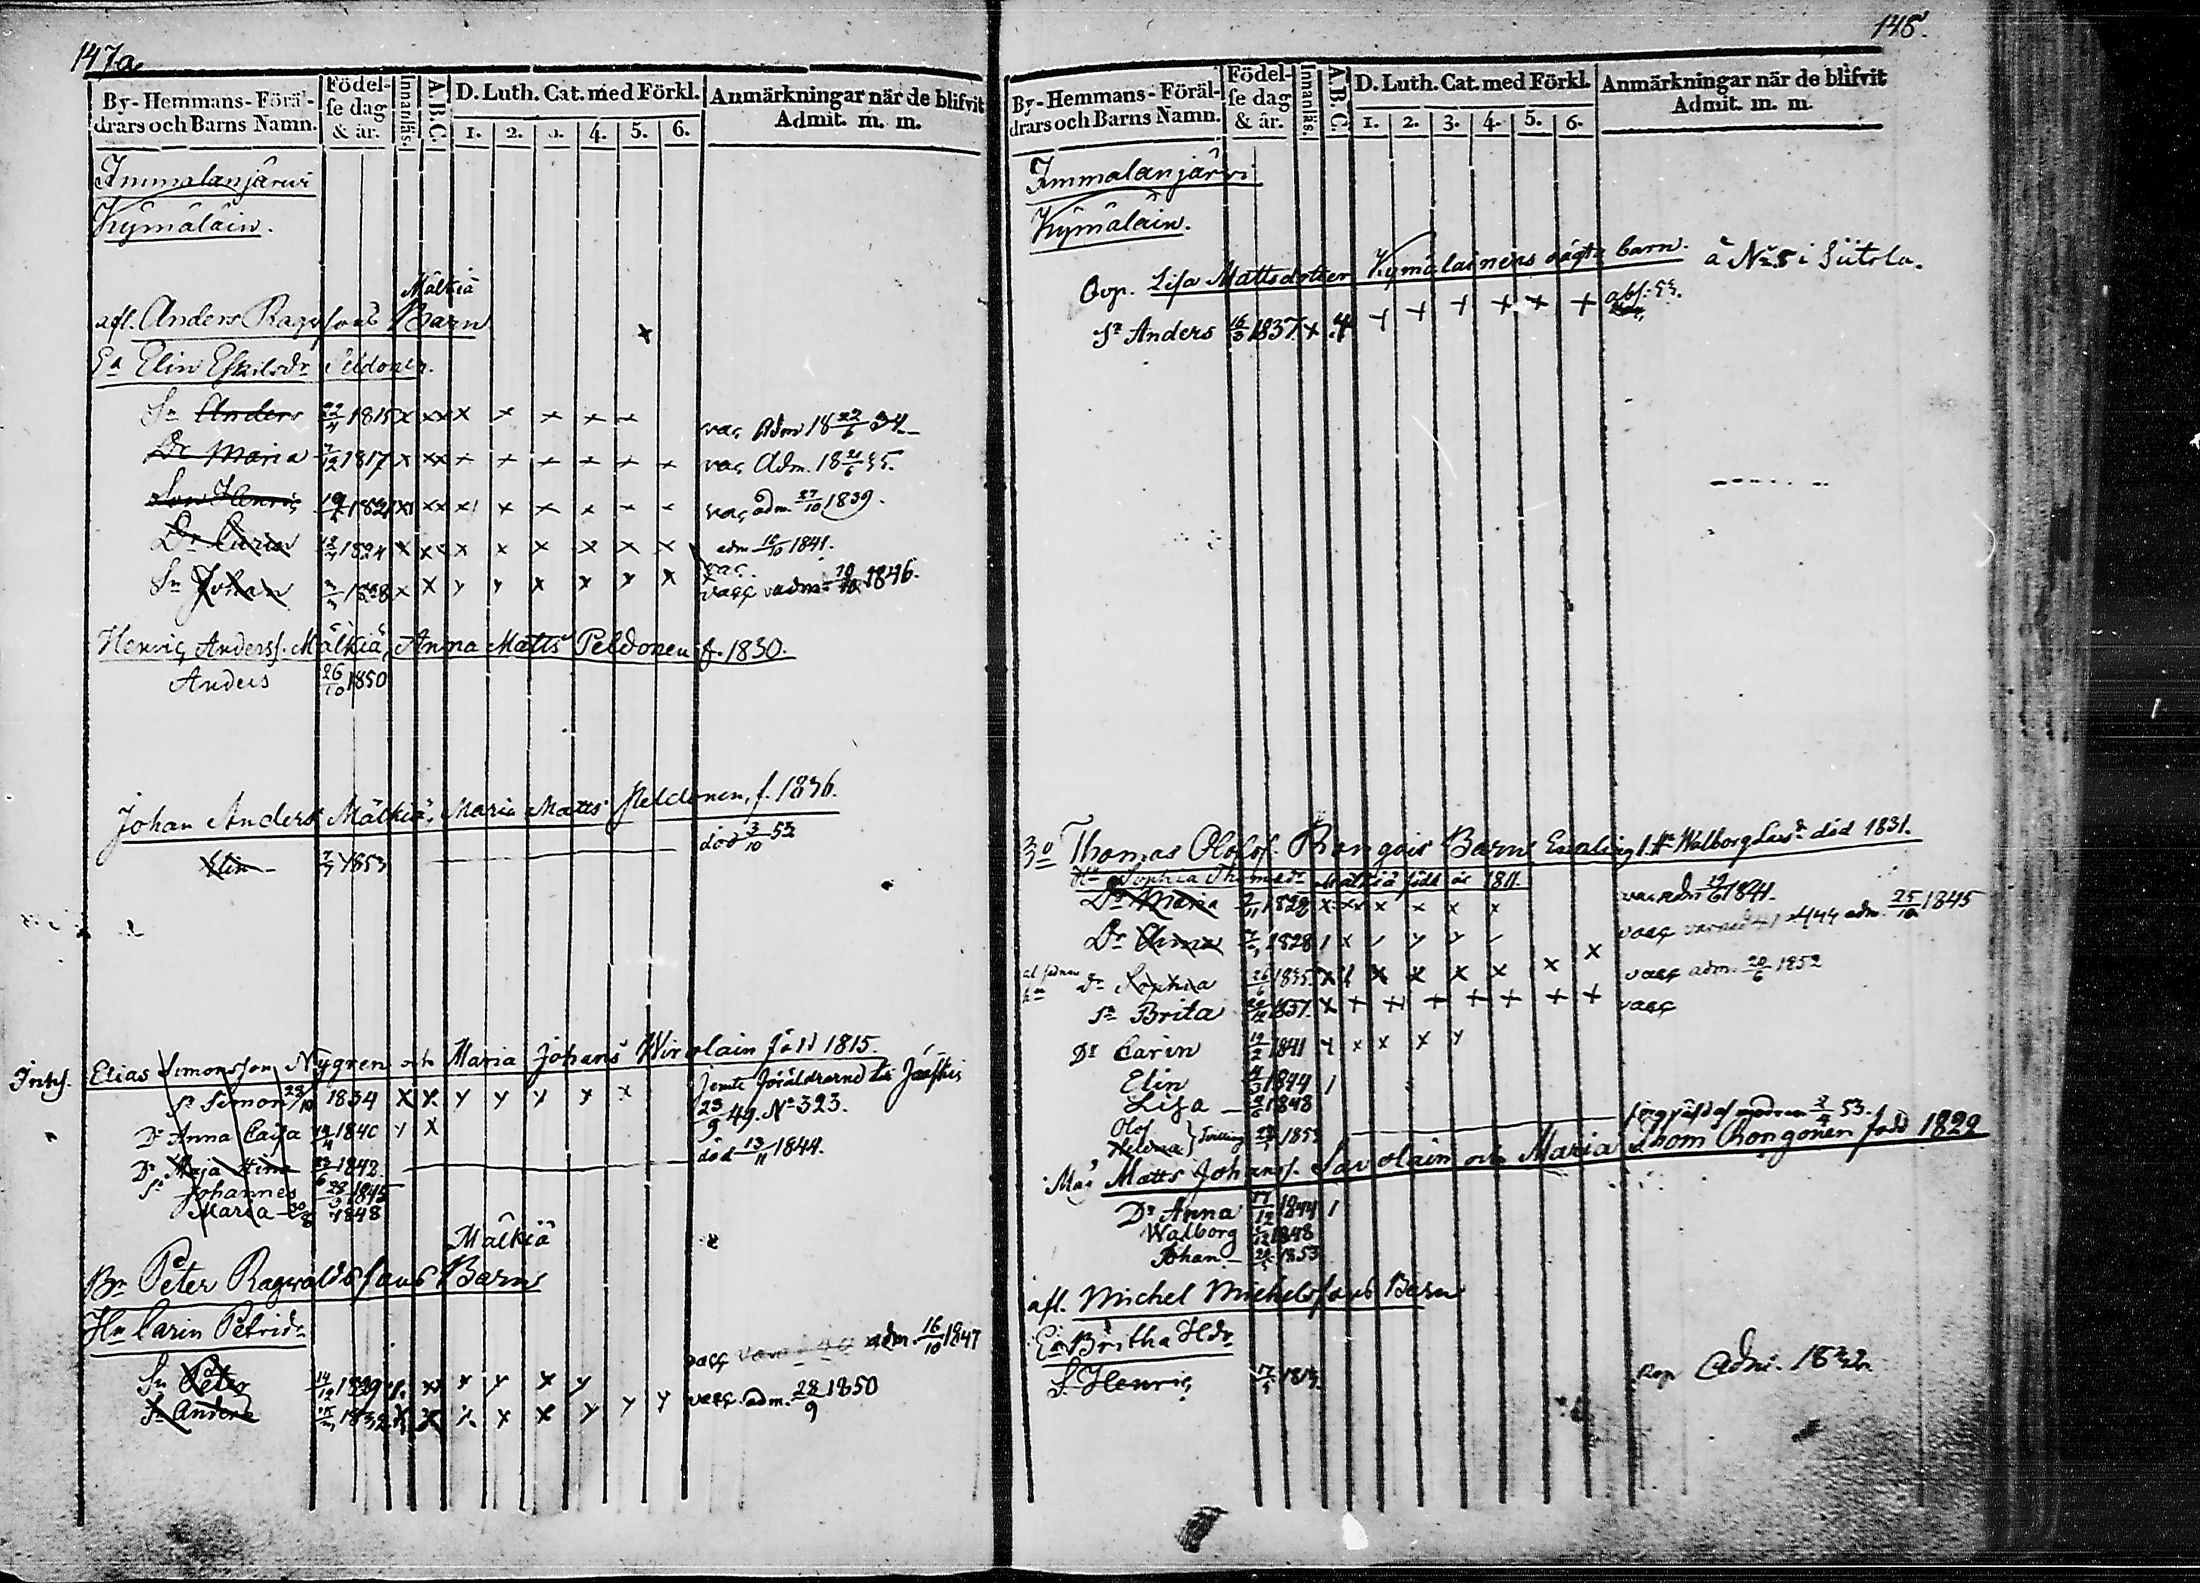 147a
By-Hemmans-Föräl-
drars och Barns Namn.
Födel-
se dag
& år.
Innanläs.
A.B.C.
D. Luth. Cat. med Förkl.
1. 2. 3. 4. 5. 6.
Anmärkningar när de blifvit
Admit. m. m.
Immalanjärwi
Kymäläin.
Mälkiä
afl. Anders Ragv sons Barn
Ea Elin Eskilsdr Peldonen.
Sn Anders 1815 x xx x x x x x vac Adm 18 22/6 34
Dr Maria 7/12 1817 x xx x x x x x x vac Adm. 18 21/6 35.
Son Henric 1821 x xx x x x x x x vac adm. 27/10 1839.
Dr Carin 1824 x x x x x x x x adm 10/10 1841.
vac.
Sn Johan 1828 x x y y x x y x vacc adm 1846.
Henric Anderss. Mälkiä, Anna Matts Peldonen f. 1830.
Anders 26/10 1850
Johan Anders Mälkiä, Maria Matts Peldonen, f. 1836.
Elin 1853 död 3/10 53
Elias Simonsson Nygren och Maria Johans Wirolain född 1815
Sn Simon 23/10 1834 x x y y y y x Jemte föräldrarne till Jääskis
23/9 49. No 323.
Dr Anna Caisa 1840 y x
Dr Maja Stina 1843. död 13/11 1844.
Sn Johannes 28/3 1845
Maria 1848
Mälkiä
Br Peter Ragvaldssons Barn
Hu Carin Petridr
Sn Peter 14/12 1829 x x y x y vacc adm. 16/10 1847
Sn Anders 1832 x x x x x y y y vacc. adm. 28/9 1850
148.
By-Hemmans-Föräl-
drars och Barns Namn.
Födel-
se dag
& år.
Innanläs.
A.B.C.
D. Luth. Cat. med Förkl.
1. 2. 3. 4. 5. 6.
Anmärkningar när de blifvit
Admit. m. m.
Immalanjärwi
Kymäläin.
Qvp. Lisa Mattsdotter Kymäläinens oägta barn. å No 5 i Siitola.
Sn Anders 16/3 1837 x x + + + + + + abs. 53.
3o Thomas Olofss. Rongois Barn 1 Hu Walborg Larsdr död 1831.
Hu Sophia Thomsdr Mälkiä född år 1811.
Dr Maria 1822 x xx x x x x vac adm 1841.
Dr 1828 vacc adm. 25/10 1845
Dr Sophia 26/6 1835 x x x x x x x vacc adm. 20/6 1852
Sn Brita 1837 x + + + + + + + vacc
Dr Carin 19/2 1841 y x x x y
Elin 4/3 1844 1
Lisa 1848
Olof
Helena Tvilling 1853
Matts Johanss. Savolain och Maria Thom Rongonen född 1822
Dr Anna 17/12 1844 1
Walborg 1848
Johan 1853
afl. Michel Michelssons Barn
Ea Britha Hdr
S. Henric 17/5 1813 Kop Adm. 1832